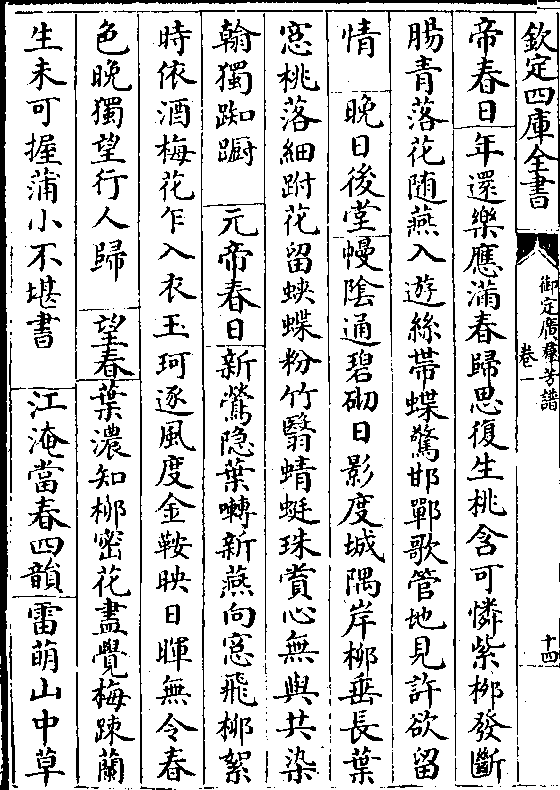 欽定四庫全書
御定廣羣芳譜
卷一
十四
帝春日年還樂應滿春歸思復生桃含可憐紫栁發斷
腸青落花随燕入遊絲帶蝶驚邯鄲歌管地見許欲留
情　晚日後堂幔陰通碧砌日影度城隅岸栁垂長葉
窓桃落細跗花留蛺蝶粉竹翳蜻蜓珠賞心無與共染
翰獨踟蹰　元帝春日新鶯隐葉囀新燕向窓飛栁絮
時依酒梅花乍入衣玉珂逐風度金鞍映日暉無令春
色晚獨望行人歸　望春葉濃知栁密花盡覺梅踈蘭
生未可握蒲小不堪書　江淹當春四韻雷萌山中草